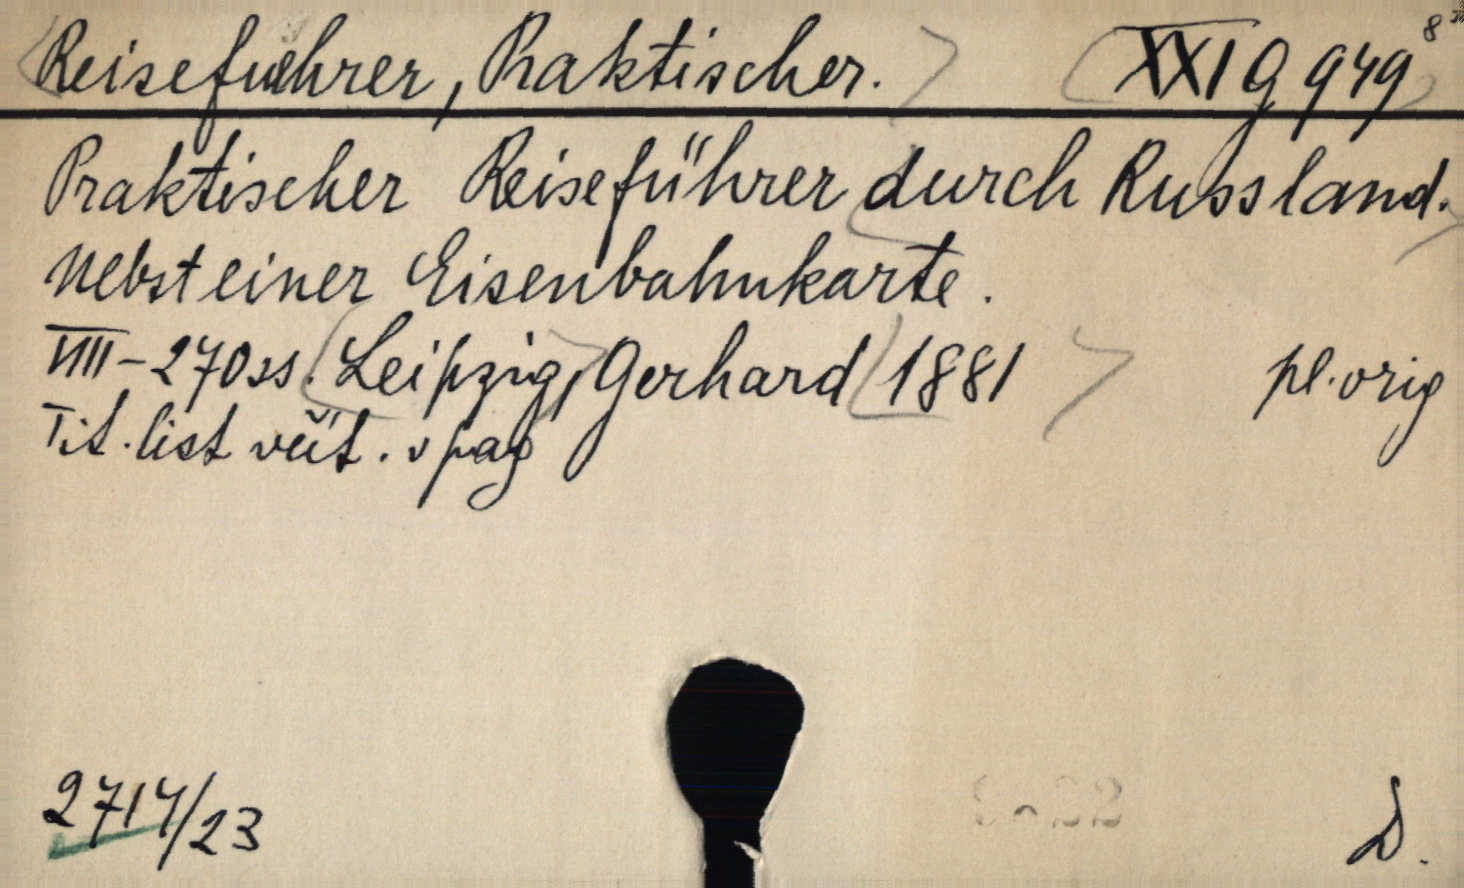 Reisefuehrer, Praktischer. XXI G 949
Praktischer Reiseführer durch Russland.
Nebst einer Eisenbahnkarte.
VIII-270ss. Leipzig, Gerhard 1881 pl. orig
Tit. list včít. v pag
2717/23 D.